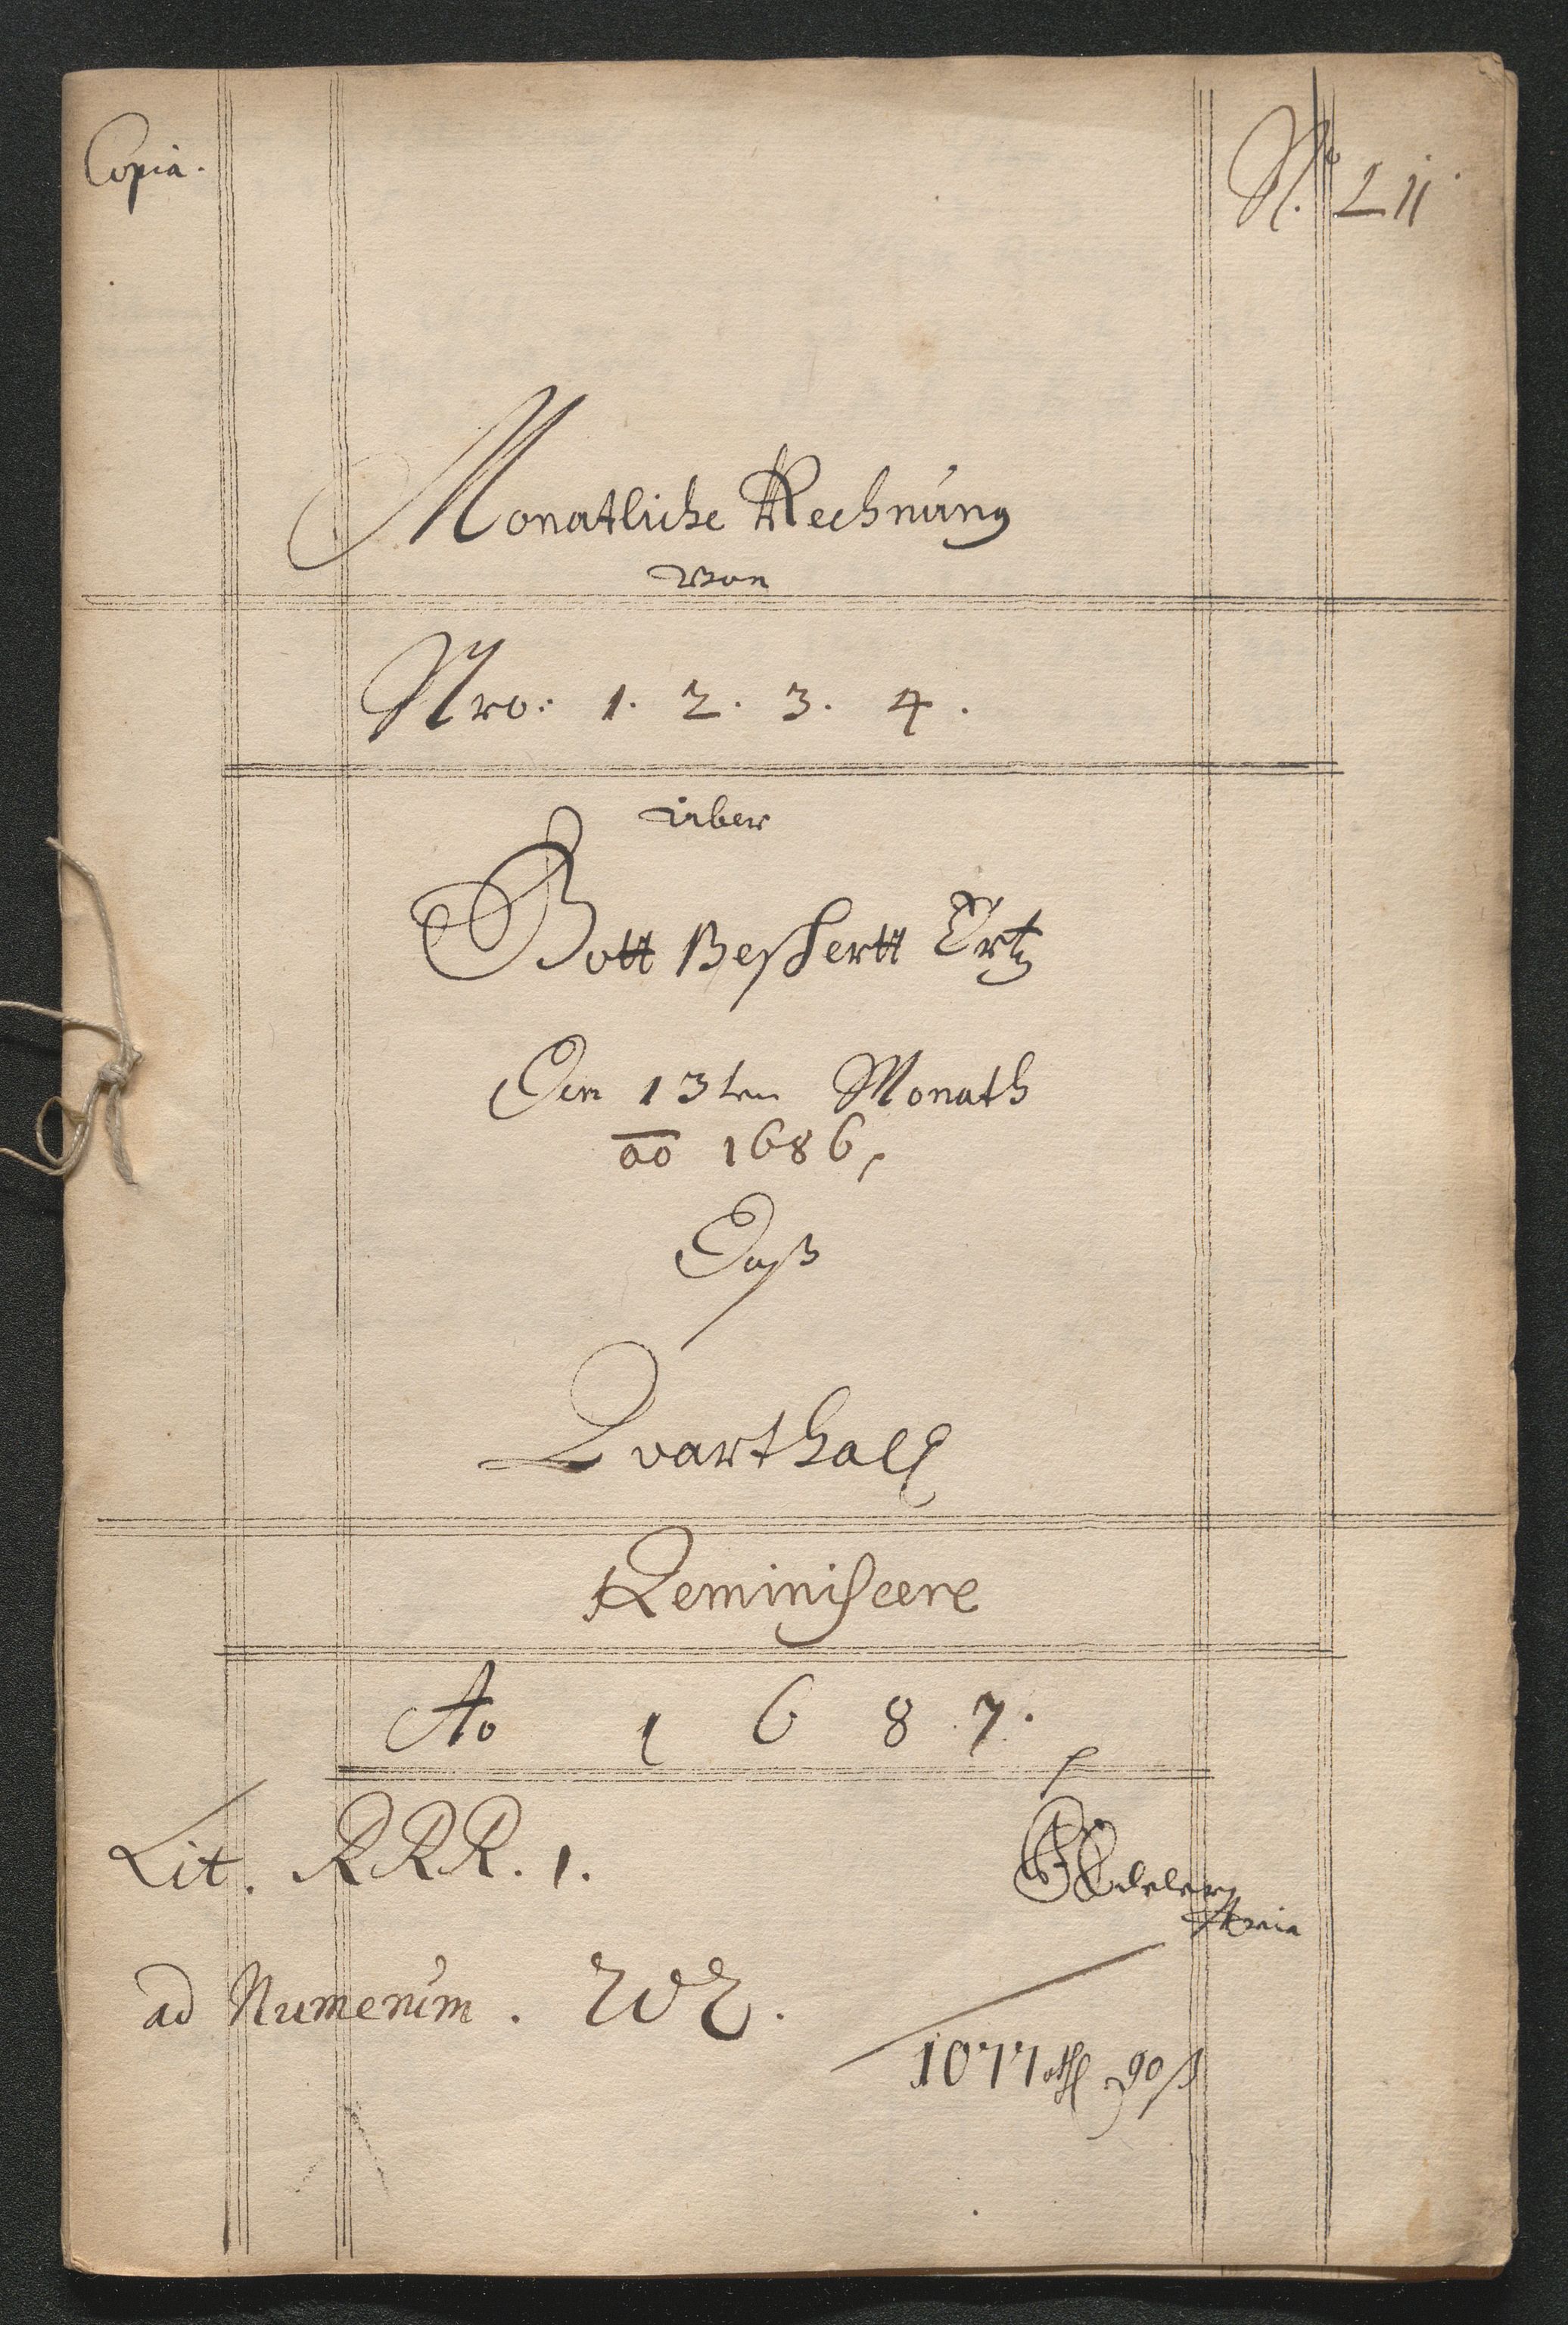 Copia.
No. 211.
Monatliche Rechnúng
von
Nro: 1. 2. 3. 4.
über
Gott Bessertt Ertz
Den 13ten Monath
ao 1686,
Daß
Qvarthall
Reminiscere
Ao 1687.
Lit. RRR. 1.
ad Numerúm. 202.
1077 90 ß